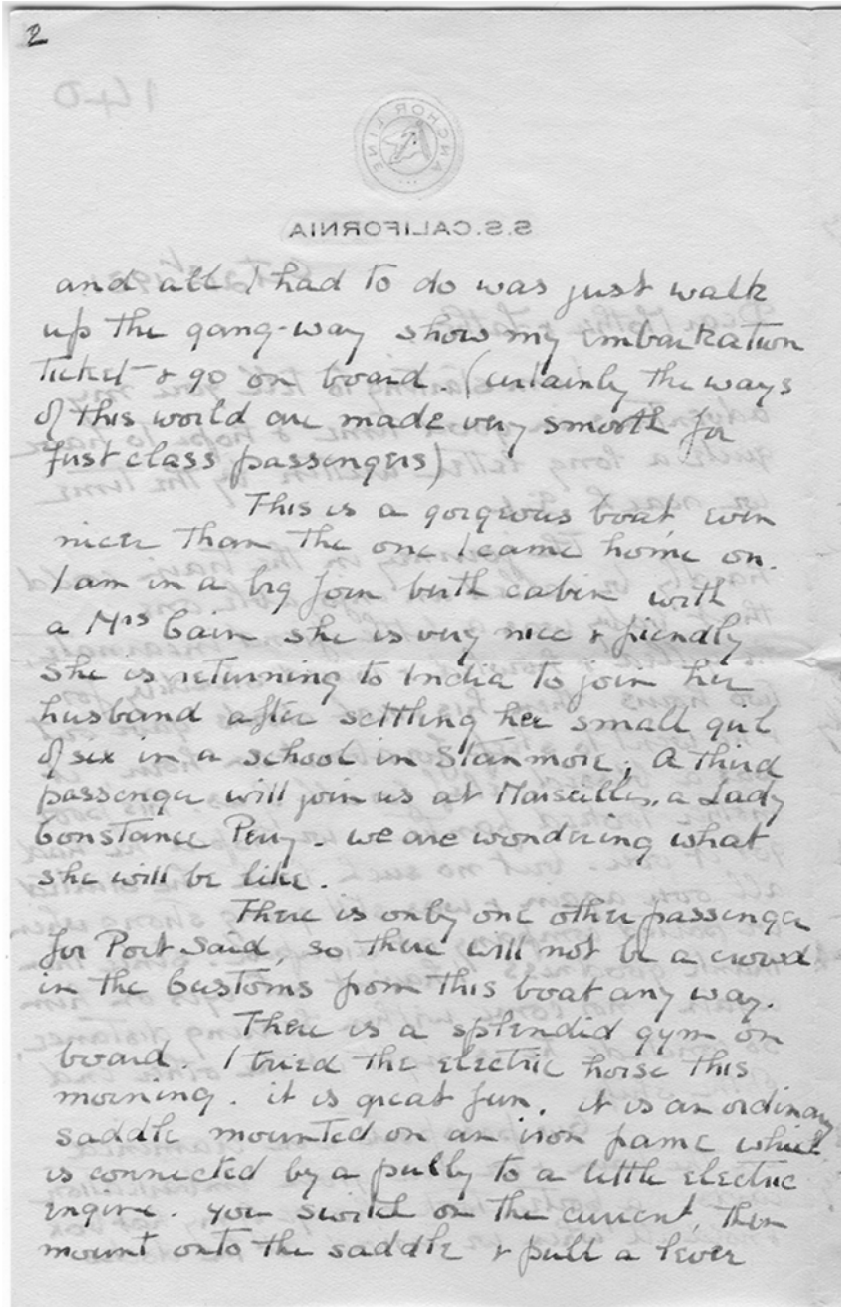 2
140
ANCHOR LINE
S.S. CALIFORNIA
and all I had to do was just walk
up the gang-way show my embarkation
ticket & go on board. (Certainly the ways
of this world are made very smooth for
first class passengers)
This is a gorgeous boat, even
nicer than the one I came home on.
I am in a big four berth cabin with
a Mrs Cain she is very nice & friendly
she is returning to India to join her
husband after settling her small girl
of six in a school in Stanmore; A third
passenger will join us at Marseilles, a Lady
Constance Perry. we are wondering what
she will be like.
There is only one other passenger
for Port Said, so there will not be a crowd
in the Customs from this boat any way.
There is a splendid gym on
board. I tried the electric horse this
morning. it is great fun. it is an ordinary
saddle mounted on an iron frame which
is connected by a pully to a little electric
engine. you switch on the current, then
mount onto the saddle & pull a lever